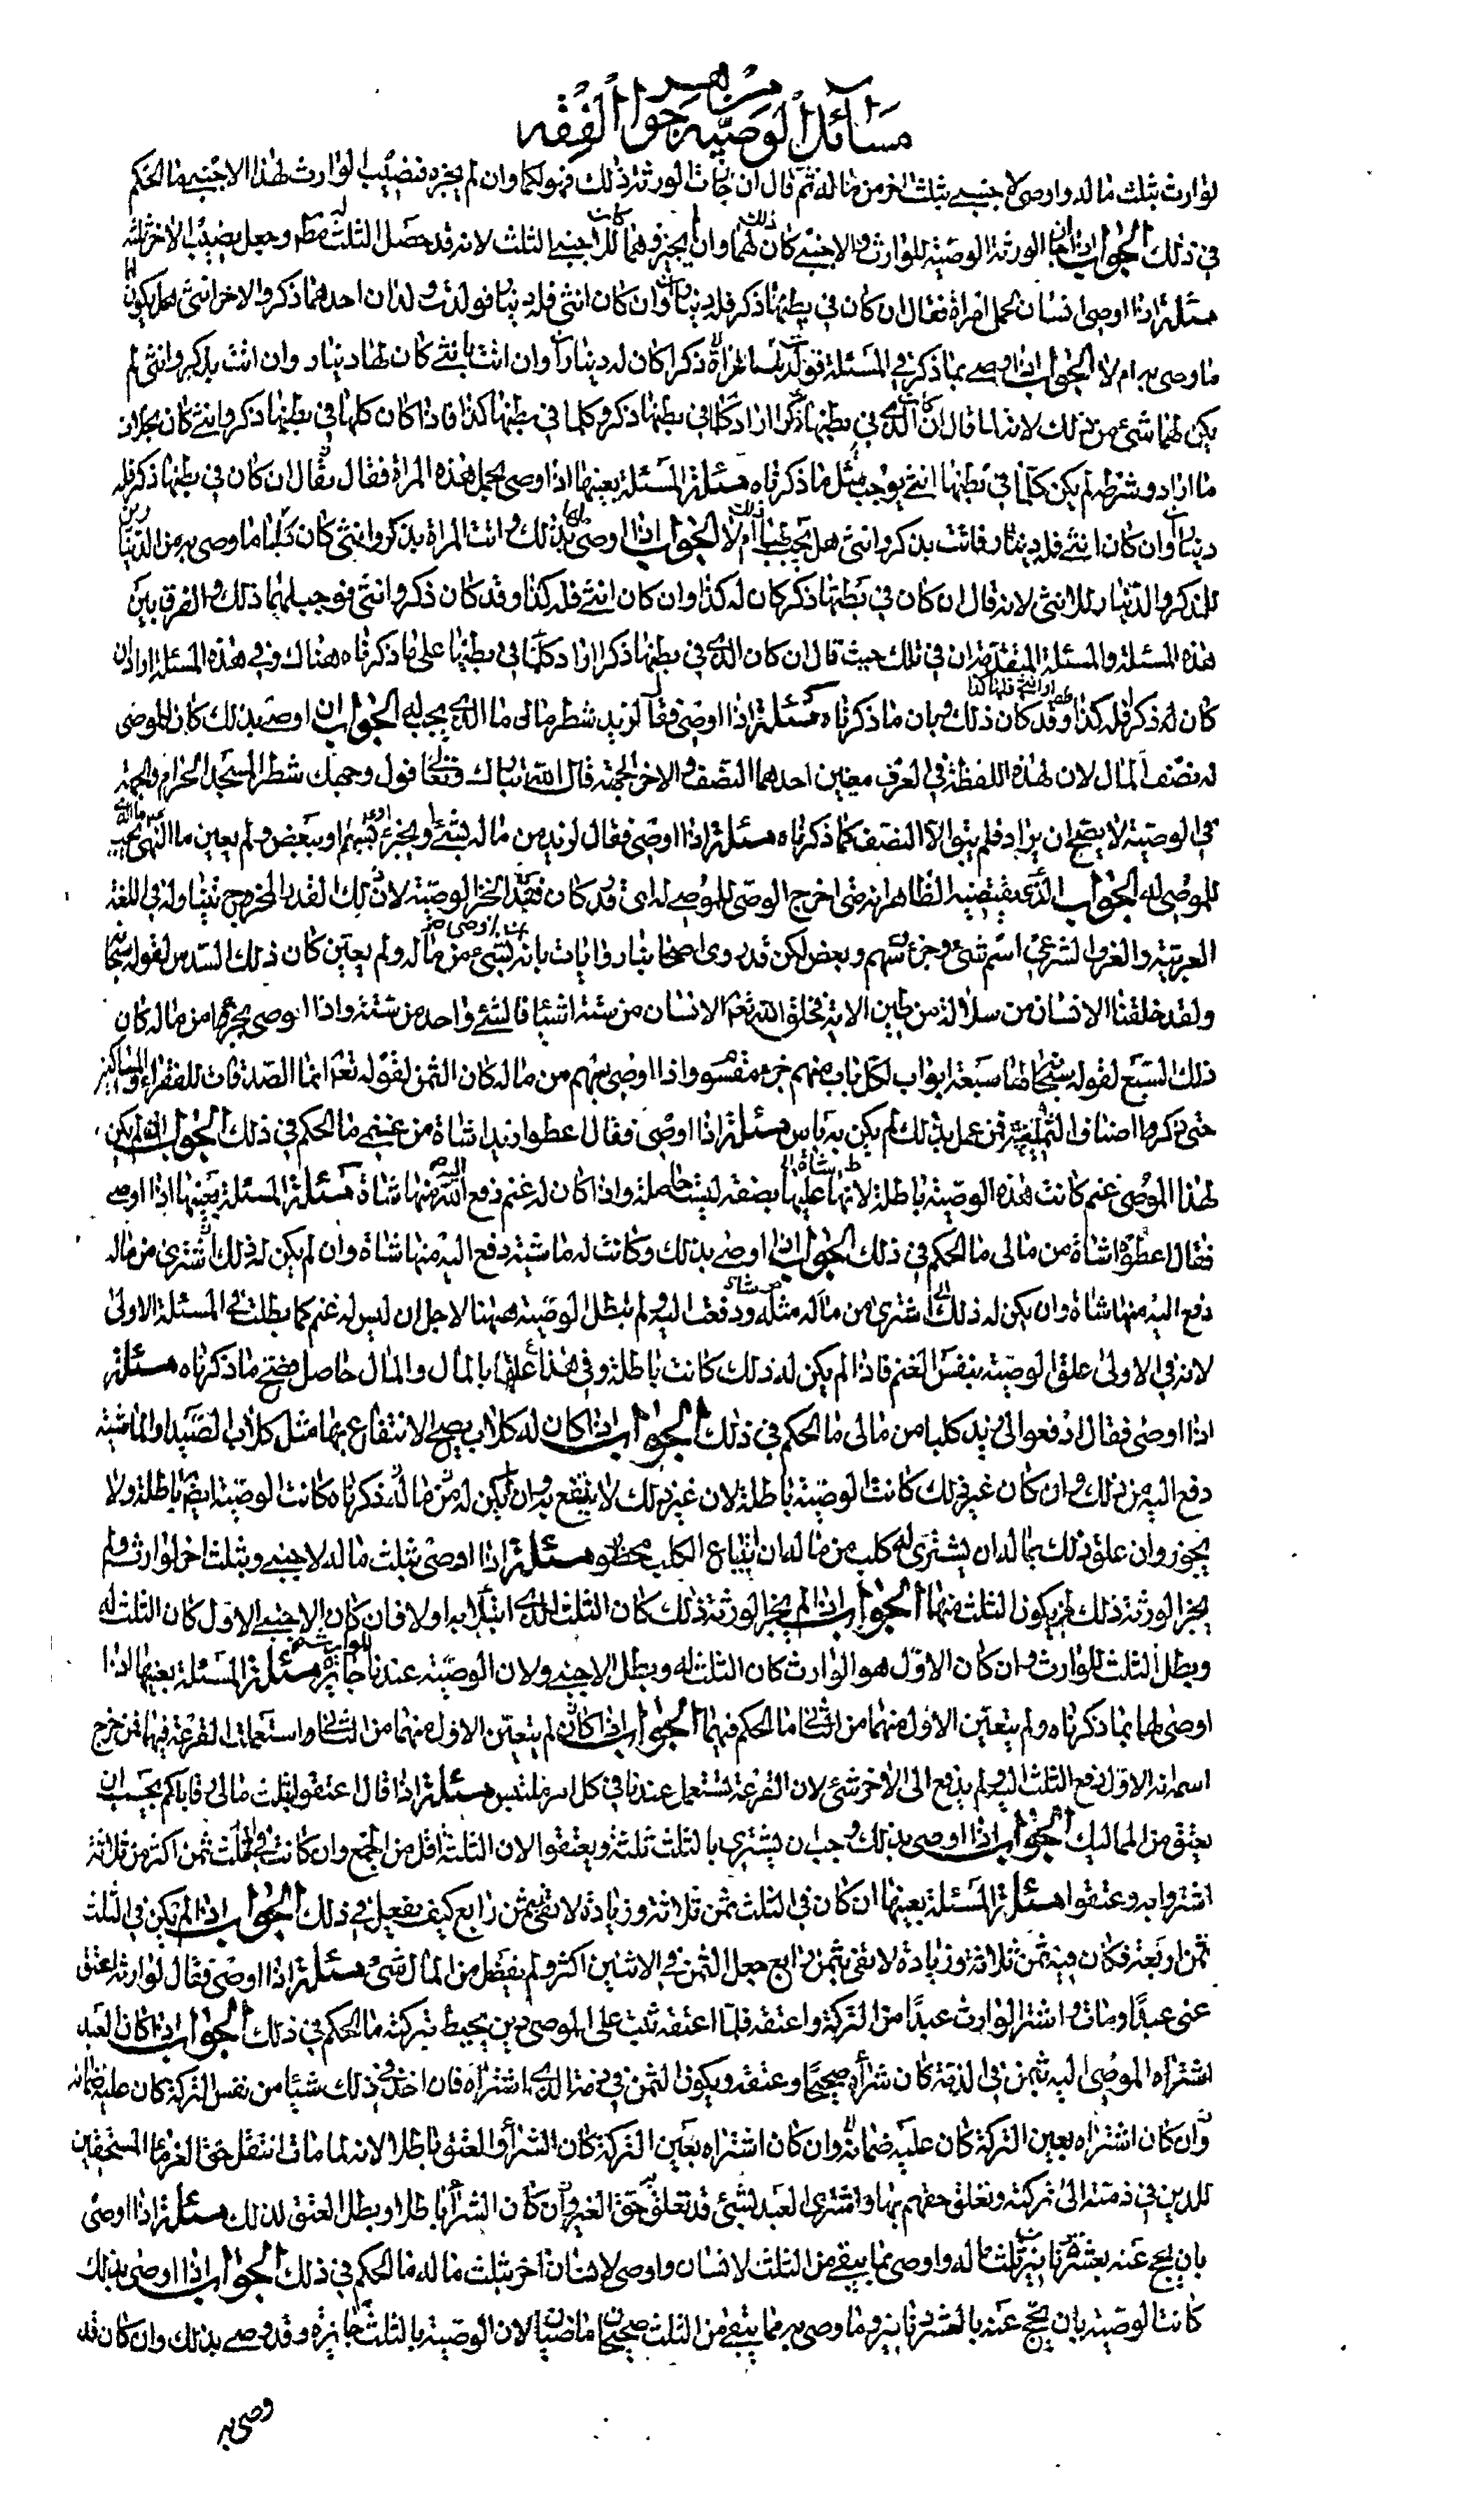 مسائل الوصية من جواهر الفقه
لوارث بثلث ماله واوصى لاجنبي بثلث اخر من ماله ثم قال ان اجازت الورثة ذلك فهو لكما وان لم يجزه فنصيب الوارث لهذا الاجنبي ما الحكم
في ذلك الجواب اذا اجاز الورثة الوصية للوارث والاجنبي كان ذلك لهما وان لم يجيزوهما كان للاجنبي الثلث لانه قد حصل الثلث له وجعل نصيب الاخر ثلثه
مسئلة اذا اوصى انسان لحمل امراة فقال ان كان في بطنها ذكر فله ديناران وان كان انثى فله دينار فولدت ولدان احدهما ذكر والاخر انثى هل يكون لهما
ما وصى به ام لا الجواب اذا وصى بما ذكر في المسئلة فولدت المراة ذكرا كان له ديناران وان اتت بانثى كان لها دينار وان اتت بذكر وانثى لم
يكن لهما شئ من ذلك لانه لما قال ان كان الذي في بطنها ذكرا اراد كلما في بطنها ذكر وكلما في بطنها كذا فاذا كان كلما في بطنها ذكر وانثى كان بخلاف
ما اراد وشرطه لم يكن كلما في بطنها انثى يوجب مثل ما ذكرناه مسئلة المسئلة بعينها اذا اوصى لحمل هذه المراة فقال ان كان في بطنها ذكر فله
ديناران وان كان انثى فله دينار فاتت بذكر وانثى هل يجب لهما ذلك ام لا الجواب اذا اوصى لها بذلك واتت المراة بذكر وانثى كان لهما ما وصى به من الدينارين
للذكر والدينار للانثى لانه قال ان كان في بطنها ذكر كان له كذا وان كان انثى فله كذا وقد كان ذكر وانثى فوجب لهما ذلك والفرق بين
هذه المسئلة والمسئلة المتقدمة ان في تلك حيث قال ان كان الذي في بطنها ذكرا اراد كلما في بطنها على ما ذكرناه هناك وفي هذه المسئلة اراد ان
كان له ذكر فله كذا او انثى فلها كذا وقد كان ذلك وبان ما ذكرناه مسئلة اذا اوصى فقال لزيد شطر مالي ما الذي يجب له الجواب ان اوصى بذلك كان للموصى
له نصف المال لان لهذه اللفظة في العرف معنيين احدهما النصف والاخر الجهة قال الله تبارك وتعالى فول وجهك شطر المسجد الحرام والجهة
في الوصية لا يصح ان يراد فلم يبق الا النصف كما ذكرناه مسئلة اذا اوصى فقال لزيد من ماله بشئ او بجزء او بسهم او ببعض ولم يعين ما الذي يجب
للموصى له الجواب الذي يقتضيه الظاهر انه متى اخرج الوصي للموصى له اي قدر كان نفذ اخراج الوصية لان ذلك القدر المخرج يتناوله في اللغة
العربية والعرف الشرعي اسم شئ وجزء وسهم وبعض لكن قد روى اصحابنا روايات بانه ان اوصى بشئ من ماله ولم يعين كان ذلك السدس لقوله سبحانه
ولقد خلقنا الانسان من سلالة من طين الاية فخلق الله تعالى الانسان من ستة اشياء فالشئ واحد من ستة واذا اوصى بجزء من ماله كان
ذلك السبع لقوله سبحانه لها سبعة ابواب لكل باب منهم جزء مقسوم واذا اوصى بسهم من ماله كان الثمن لقوله تعالى انما الصدقات للفقراء والمساكين
حتى ذكر اصناف الثمانية فمن عمل بذلك لم يكن به باس مسئلة اذا اوصى فقال اعطوا زيدا شاة من غنمي ما الحكم في ذلك الجواب اذا لم يكن
لهذا الموصى غنم كانت هذه الوصية باطلة لانها علقها بصفة ليست حاصلة واذا كان له غنم دفع اليه منها شاة مسئلة المسئلة بعينها اذا اوصى
فقال اعطوه شاة من مالي ما الحكم في ذلك الجواب ان اوصى بذلك وكانت له ماشية دفع اليه منها شاة وان لم يكن له ذلك اشترى من ماله
دفع اليه منها شاة وان يكن له ذلك اشترى من ماله مثله ودفعت اليه ولم تبطل الوصية ههنا لاجل ان ليس له غنم كما بطلت في المسئلة الاولى
لانه في الاولى علق الوصية بنفس الغنم فاذا لم يكن له ذلك كانت باطلة وفي هذا علقها بالمال والمال حاصل فصح ما ذكرناه مسئلة
اذا اوصى فقال ادفعوا الى زيد كلبا من مالي ما الحكم في ذلك الجواب اذا كان له كلاب يصح الانتفاع بها مثل كلاب الصيد او الماشية
دفع اليه من ذلك وان كان غير ذلك كانت الوصية باطلة لان غير ذلك لا ينتفع به وان لم يكن له من ماله ما ذكرناه كانت الوصية ايضا باطلة ولا
يجوز وان علق ذلك بماله ان يشترى له كلب من ماله لان ابتياع الكلب محظور مسئلة اذا اوصى بثلث ماله لاجنبي وبثلث اخر لوارث ولم
يجز الورثة ذلك لمن يكون الثلث منهما الجواب اذا لم يجز الورثة ذلك كان الثلث الذي ابتدا به اولا فان كان الاجنبي الاول كان الثلث له
وبطل الثلث للوارث وان كان الاول هو الوارث كان الثلث له وبطل الاجنبي ولان الوصية عندنا للوارث جائزة مسئلة المسئلة بعينها اذا
اوصى لهما بما ذكرناه ولم يتعين الاول منهما من الثاني ما الحكم فيهما الجواب اذا كان لم يتعين الاول منهما من الثاني واستعملت القرعة فيهما فمن خرج
اسمه انه الاول دفع الثلث اليه ولم يدفع الى الاخر شئ لان القرعة تستعمل عندنا في كل امر ملتبس مسئلة اذا قال اعتقوا بثلث مالي رقابا كم يجب ان
يعتق من المماليك الجواب اذا اوصى بذلك وجب ان يشترى بالثلث ثلثة ويعتقوا لان الثلثة اقل من الجمع وان كانت الثلث ثمن اكثر من ثلاثة
اشتروا به وعتقوا مسئلة المسئلة بعينها ان كان في الثلث ثمن ثلاثة وزيادة لا تفي بثمن رابع كيف يفعل في ذلك الجواب اذا لم يكن في الثلث
ثمن اربعة فكان فيه ثمن ثلاثة وزيادة لا تفي بثمن رابع جعل الثمن في الاثنين اكثر ولم يفضل من المال شئ مسئلة اذا اوصى فقال لوارثه اعتق
عني عبدا ومات واشترى الوارث عبدا من التركة واعتقه فلما اعتقه ثبت على الموصي دين يحيط بتركته ما الحكم في ذلك الجواب اذا كان العبد
اشتراه الموصى اليه بثمن في الذمة كان شراؤه صحيحا وعتقه ويكون الثمن في ذمة الذي اشتراه فان اخذ في ذلك شيئا من نفس التركة كان عليه ضمانه
وان كان اشتراه بعين التركة كان عليه ضمانه وان كان اشتراه بعين التركة كان الشراء والعتق باطلا لانه لما مات انتقل حق الغرماء المستحقين
للدين في ذمته الى تركته وتعلق حقهم بها واشترى العبد بشئ قد تعلق به حق الغير وان كان الشراء باطلا وبطل العتق لذلك مسئلة اذا اوصى
بان يحج عنه بعشرة دنانير ثلث ماله واوصى بما يبقى من الثلث لانسان واوصى لانسان اخر بثلث ماله ما الحكم في ذلك الجواب اذا اوصى بذلك
كانت الوصية بان يحج عنه بالعشرة دنانير وما وصى به مما يبقى من الثلث صحيحان ماضيان لان الوصية بالثلث جائزة وقد وصى بذلك وان كان قد
وصى به